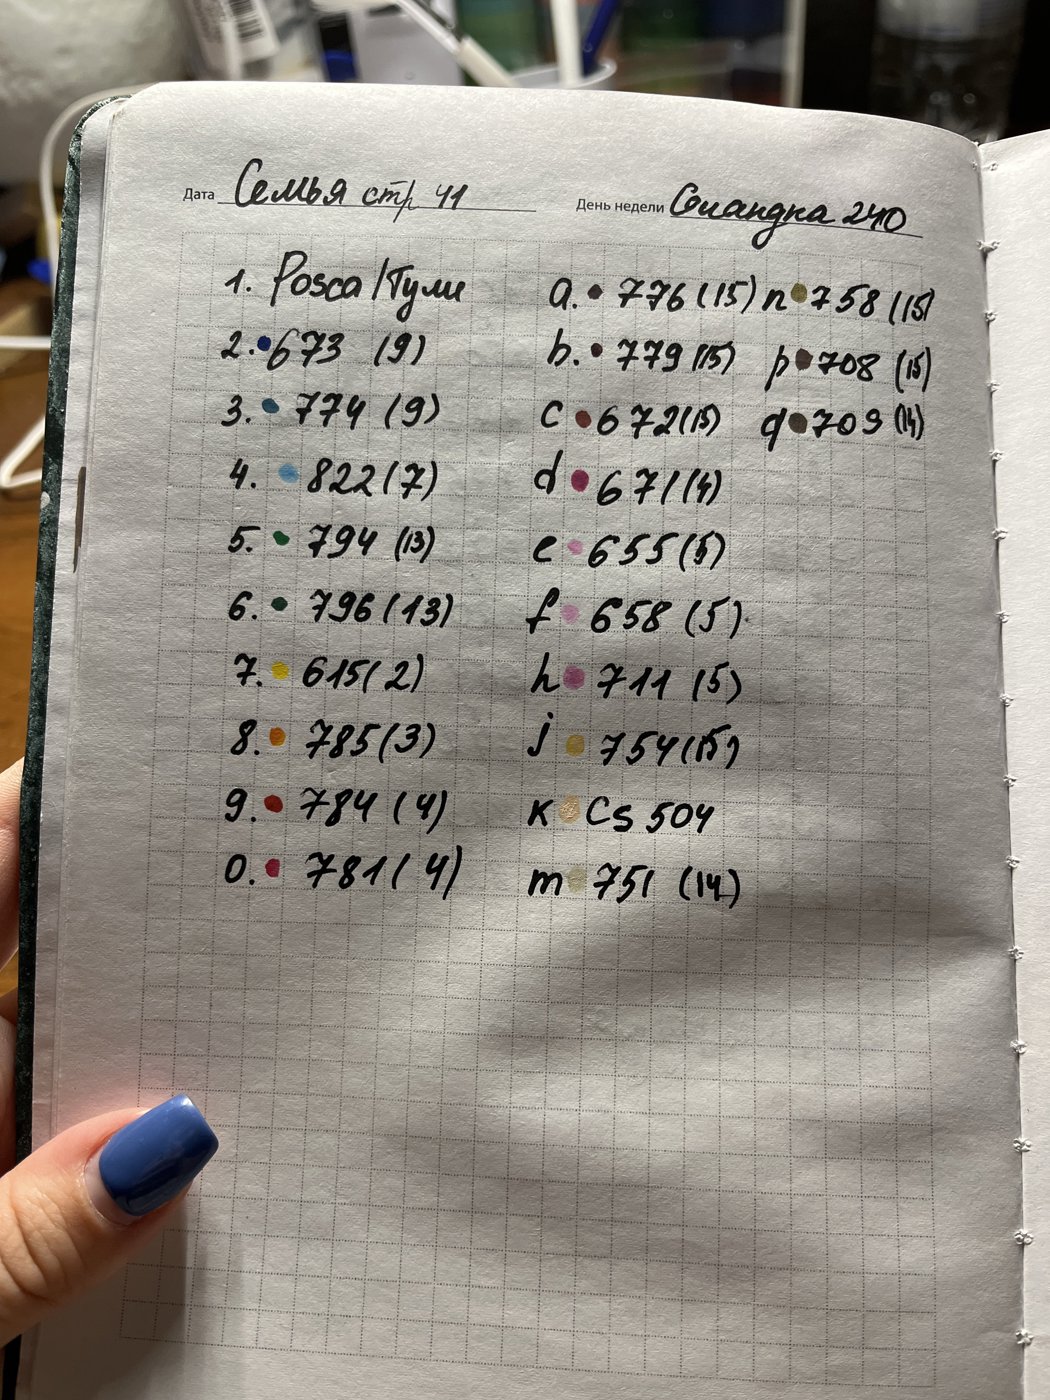 Дата Семья стр 41
День недели Гуандна 240
1. Posca/Гули
2. 673 (9)
3. 774 (9)
4. 822 (7)
5. 794 (13)
6. 796 (13)
7. 615 (2)
8. 785 (3)
9. 784 (4)
0. 781 (4)
a. 776 (15)
b. 779 (15)
c 672 (15)
d 671 (4)
e 655 (5)
f 658 (5)
h 711 (5)
j 754 (15)
k Cs 504
m 751 (14)
n 758 (15)
p 708 (15)
q 709 (14)